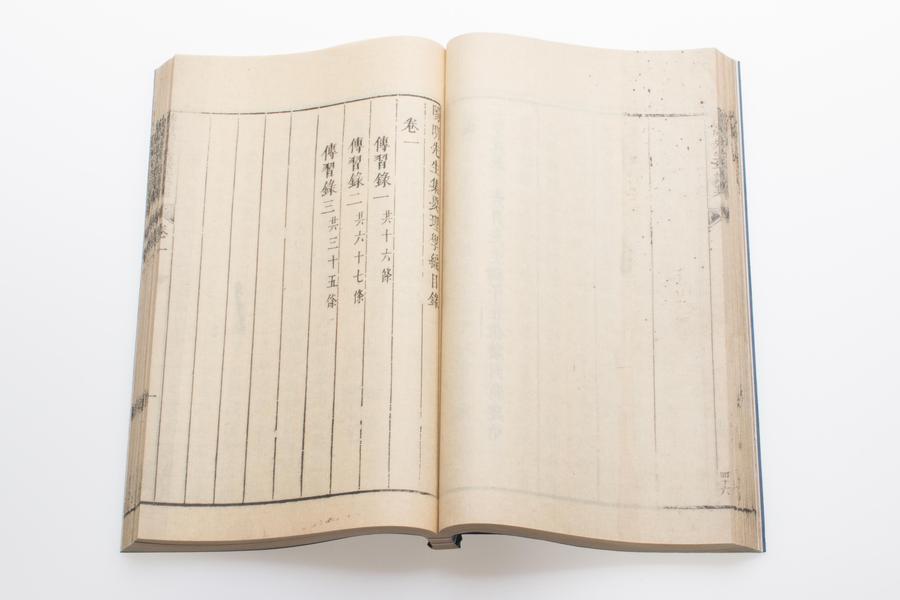 陽明先生集要理學編目錄
卷一
傳習錄一 共十六條
傳習錄二 共六十七條
傳習錄三 共三十五條